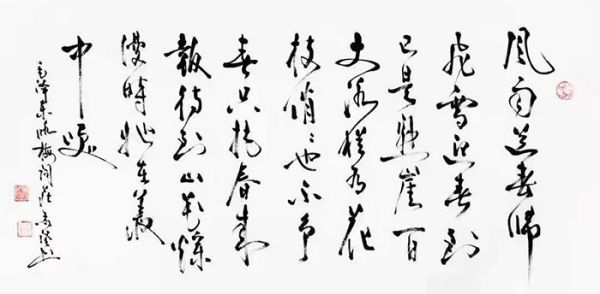 風雨送春歸
飛雪迎春到
已是懸崖百
丈冰猶有花
枝俏〻也不争
春只把春来
報待到山花爛
漫時她在叢
中笑
毛澤東咏梅詞